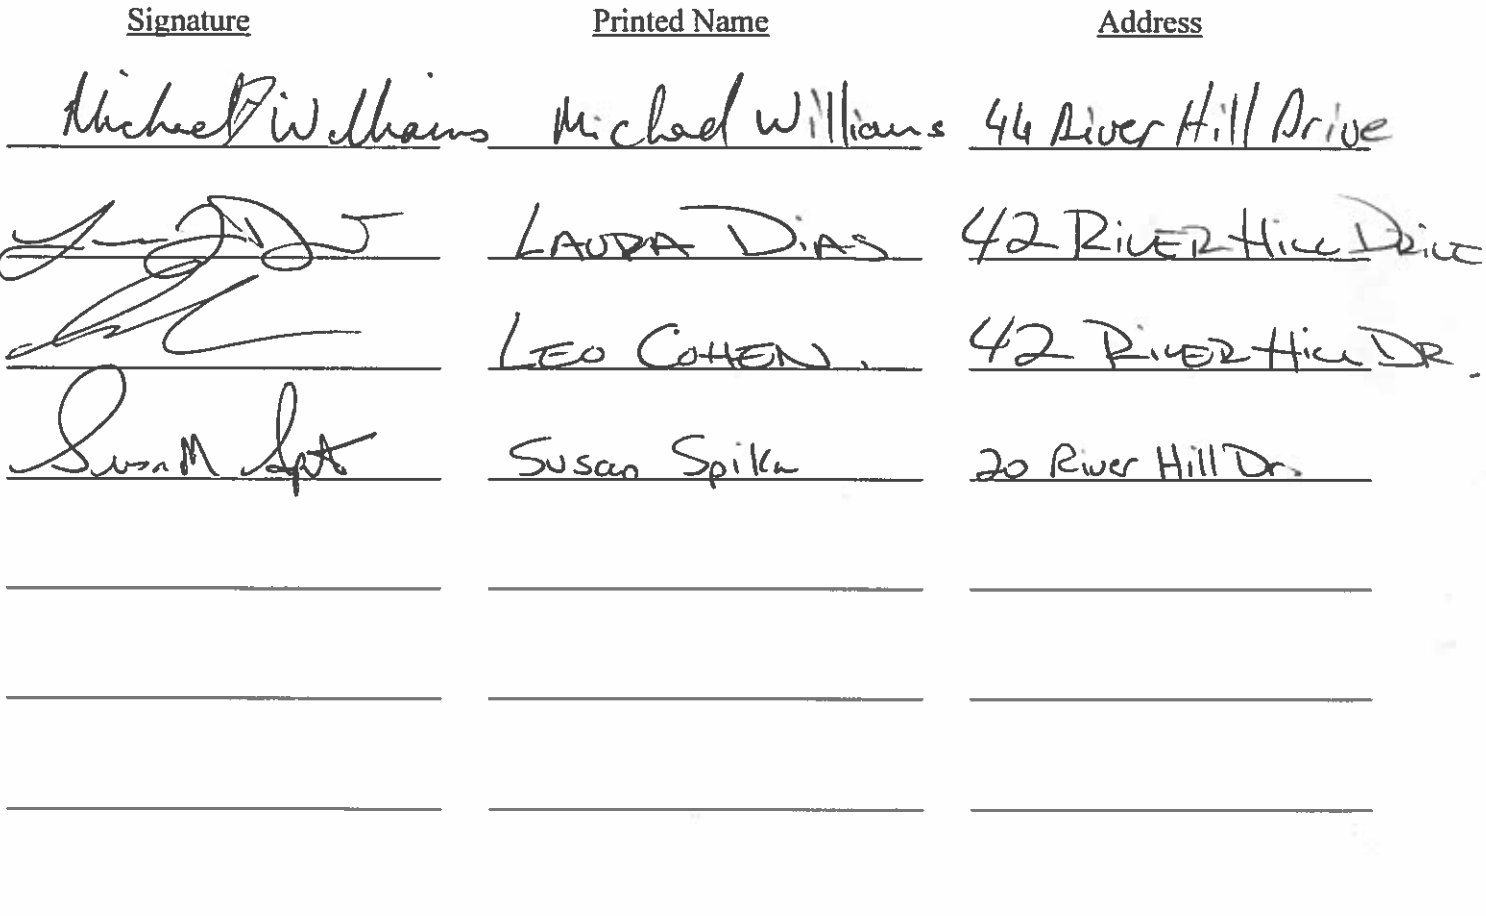 Signature Printed Name Address
Michael Williams Michael Williams 44 River Hill Drive
LAURA DIAS 42 RIVER HILL DRIVE
LEO COHEN. 42 RIVER HILL DR.
Susan M Susan Spika 20 River Hill Dr.